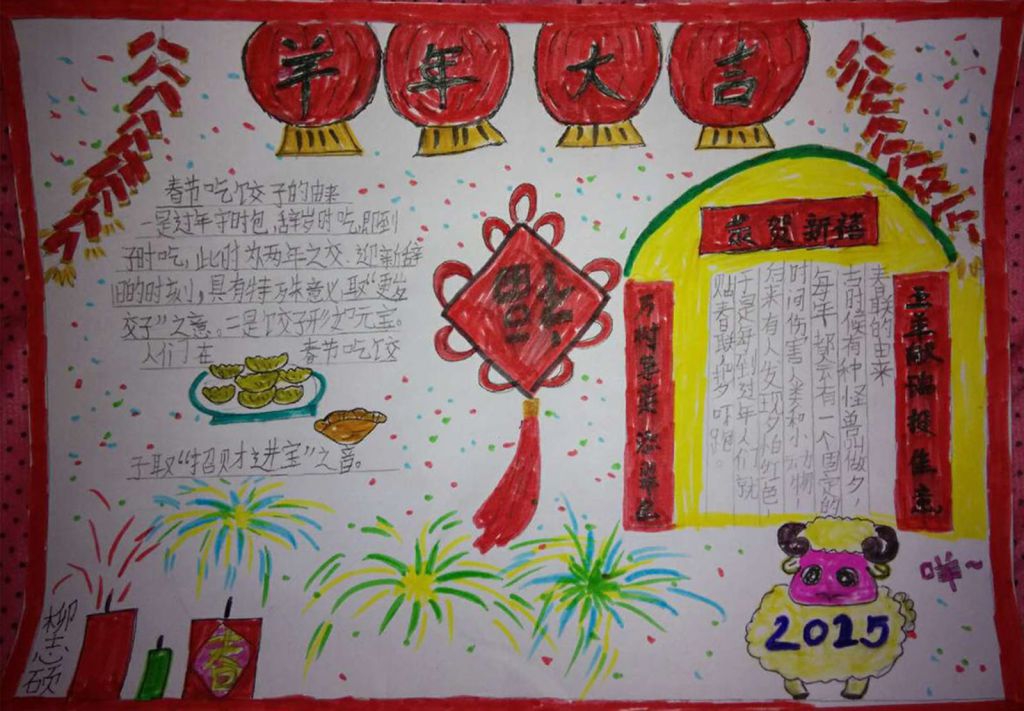 羊年大吉
春节吃饺子的由来
一是过年守时包,辞岁时吃,即到
子时吃,此时为两年之交,迎新辞
旧的时刻,具有特殊意义取“更岁
交子”之意。二是饺子形如元宝。
人们在 春节吃饺
子取“招财进宝”之音。
福
恭贺新禧
万树
玉羊献瑞 佳音
春联的由来
古时候有种怪兽叫做夕,
每年都会有一个固定的
时间伤害人类和小动物
后来有人发现夕怕红色,
于是每到过年人们就
贴春联把夕吓跑。
咩~
2015
春
柳志硕